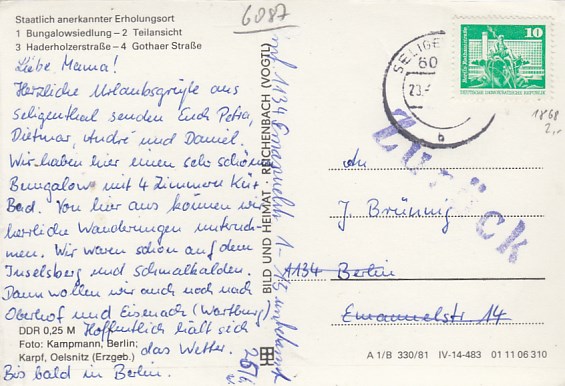 6087
Staatlich anerkannter Erholungsort
1 Bungalowsiedlung – 2 Teilansicht
3 Haderholzerstraße – 4 Gothaer Straße
Liebe Mama!
Herzliche Urlaubsgrüße aus
Seligenthal senden Euch Petra,
Dietmar, André und Daniel.
Wir haben hier einen sehr schönen
Bungalow mit 4 Zimmern Kü+
Bad. Von hier aus können wir
herrliche Wanderungen unterneh-
men. Wir waren schon auf dem
Inselsberg und Schmalkalden.
Dann wollen wir auch noch nach
Oberhof und Eisenach (Wartburg)
Hoffentlich hält sich
das Wetter.
Bis bald in Berlin.
DDR 0,25 M
Foto: Kampmann, Berlin;
Karpf, Oelsnitz (Erzgeb.)
BILD UND HEIMAT REICHENBACH (VOGTL)
1134 1-15 unbekannt
SELIGE
60
23.
b
10
DEUTSCHE DEMOKRATISCHE REPUBLIK
1868
2,-
Zurück
An
J. Brünnig
1134 Berlin
Emanuelstr 14
A 1/B 330/81 IV-14-483 01 11 06 310